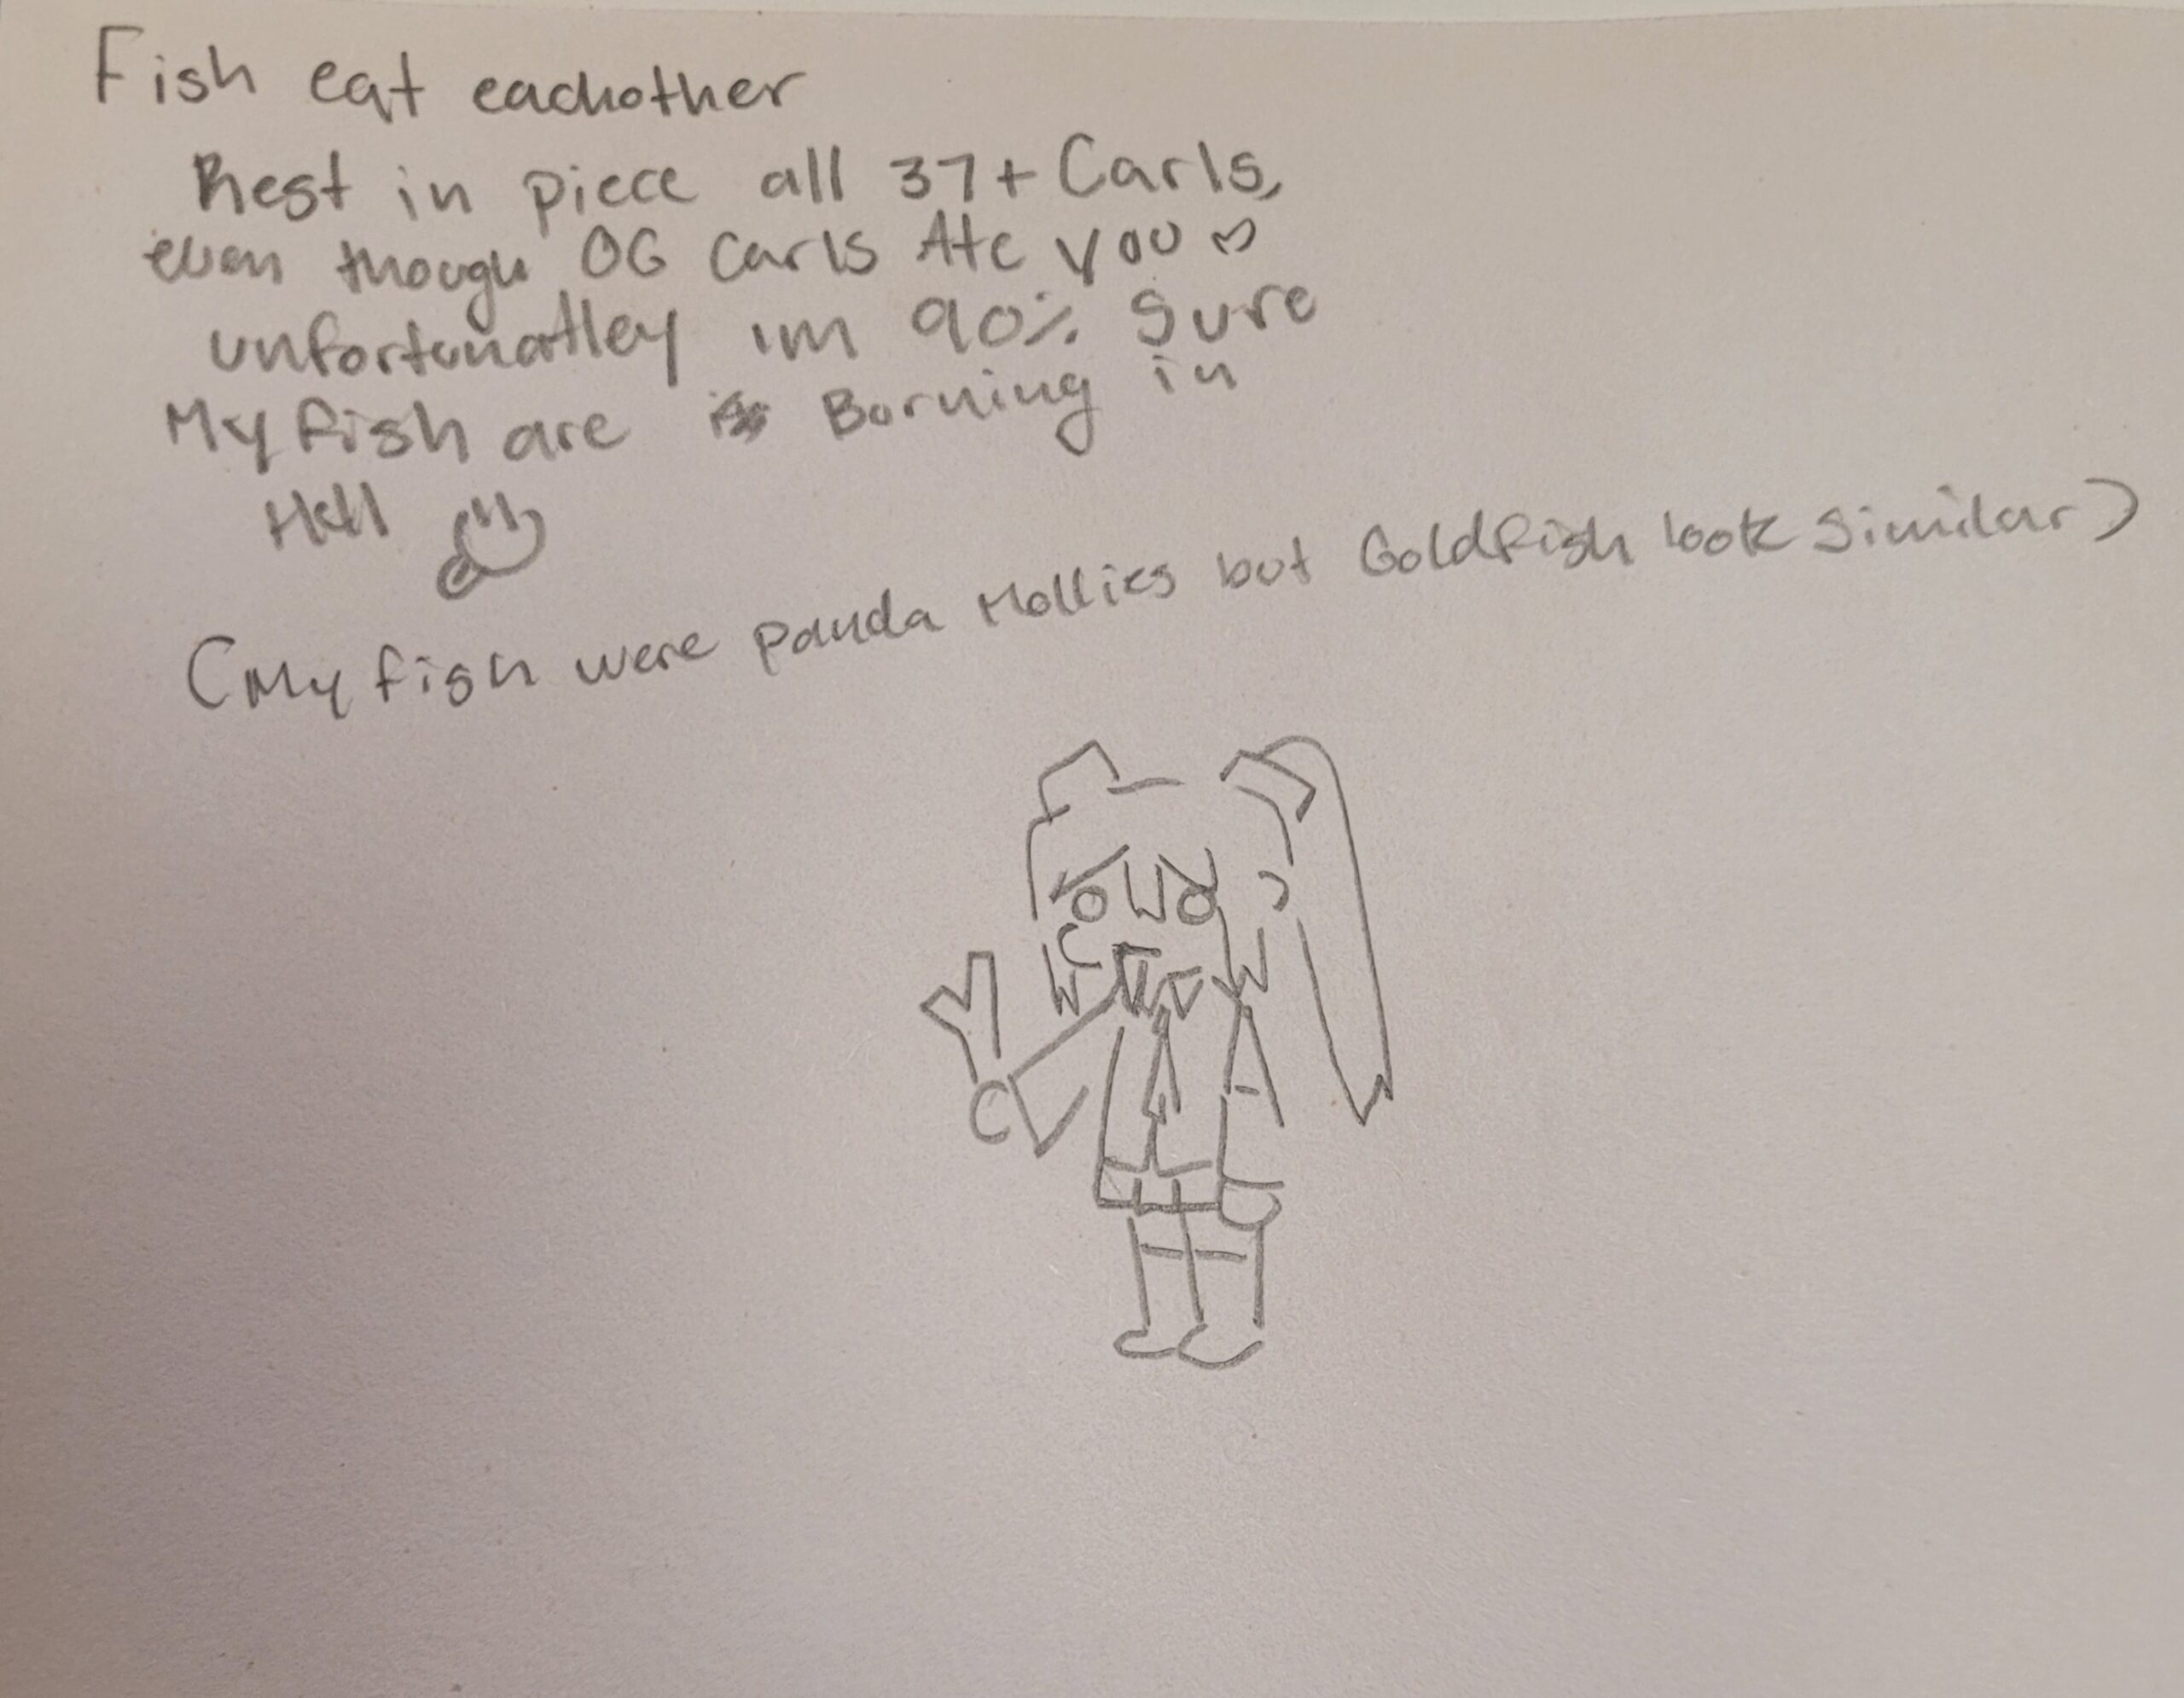 Fish eat eachother
Rest in piece all 37+ Carls,
even though OG Carls Ate you ♡
unfortunatley im 90% Sure
My fish are Burning in
Hell
(My fish were panda Mollies but Goldfish look similar)